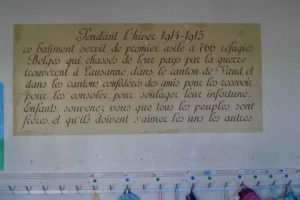 Pendant l'hiver 1914-1915
ce bâtiment servit de premier asile à 766 réfugiés
Belges qui, chassés de leur pays par la guerre
trouvèrent à Lausanne, dans le canton de Vaud et
dans les cantons confédérés des amis pour les recevoir
pour les consoler, pour soulager leur infortune.
Enfants, souvenez vous que tous les peuples sont
frères et qu'ils doivent s'aimer les uns les autres